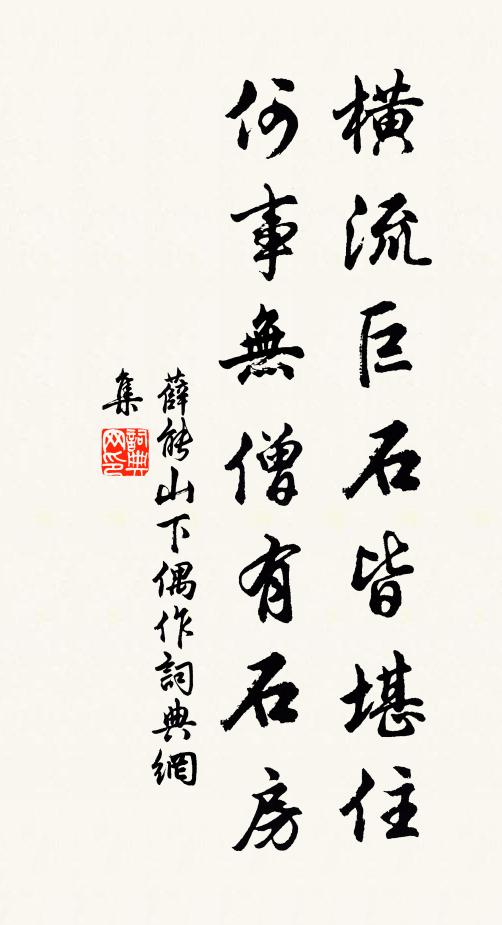 橫流巨石皆堪住
何事無僧有石房
薛能山下偶作詞典網
集
詞典
网印